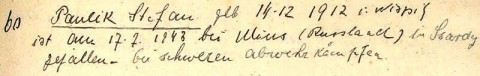 60 Paulik Stefan geb 14.12 1912 i.
ist am 17.7. 1943 bei (Russland) in
gefallen - bei schweren abwehrkämpfen.